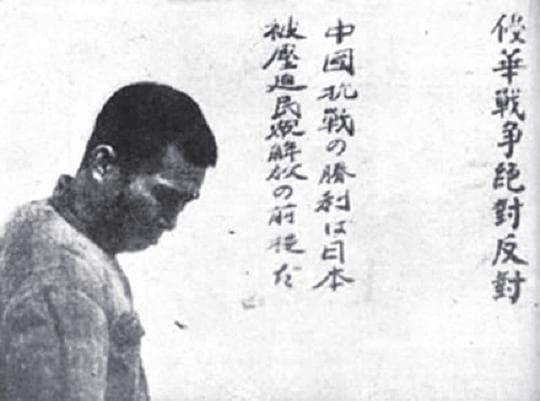 侵華戦争絶對反對
中國抗戰の勝利は日本
被壓迫民衆解放の前提だ